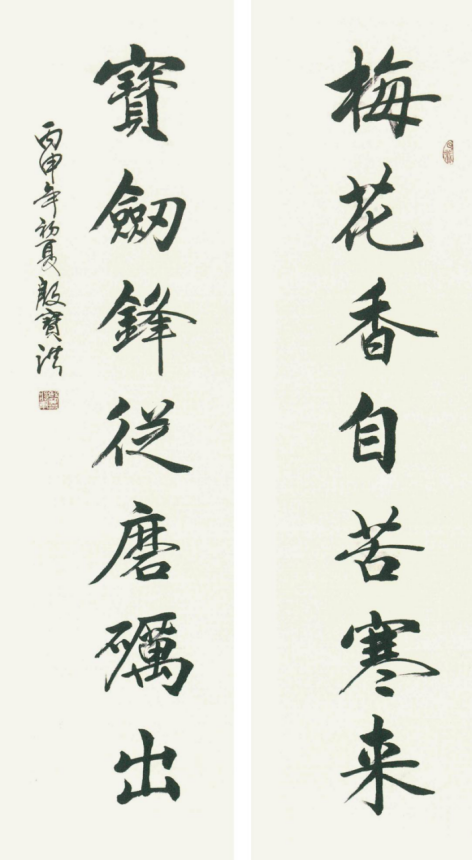 梅花香自苦寒来
寶劒鋒從磨礪出
丙申年初夏殷寶洪